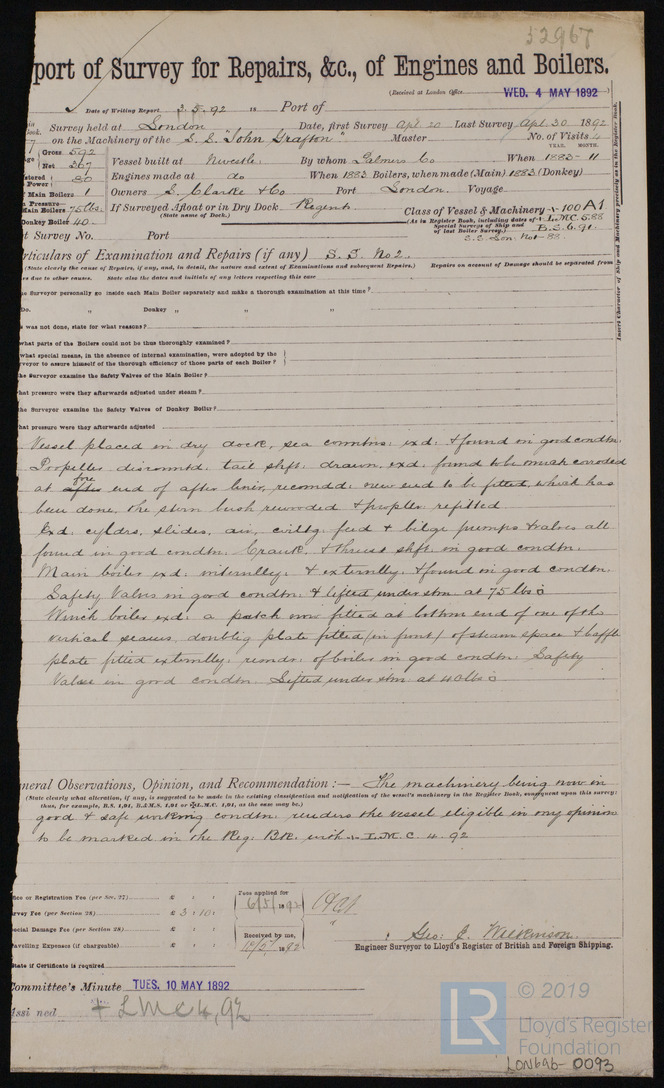 52967
port of Survey for Repairs, &c., of Engines and Boilers.
(Received at London Office WED. 4 MAY 1892)
Date of Writing Report 3.5.92 Port of
Survey held at London Date, first Survey Apl. 20 Last Survey Apl 30 1892
on the Machinery of the S.S. "John Grafton" Master No. of Visits 4
YEAR. MONTH.
Gross 592
Net 367
Vessel built at Newcstle. By whom Palmers Co When 1883-11
Power 80
Engines made at do When 1883 Boilers, when made (Main) 1883 (Donkey)
Main Boilers 1
Owners S. Clarke & Co Port London. Voyage
Main Boilers 75 lbs.
If Surveyed Afloat or in Dry Dock Regents
(State name of Dock.)
Class of Vessel & Machinery 100 A1
(As in Register Book, including dates of Special Surveys of Ship and of last Boiler Survey.)
L.M.C. 5.88
B.S. 6.91.
S.S. Lon. No1-88
Donkey Boiler 40
t Survey No. Port
rticulars of Examination and Repairs (if any) S.S. No 2.
(State clearly the cause of Repairs, if any, and, in detail, the nature and extent of Examinations and subsequent Repairs.) Repairs on account of Damage should be separated from
es due to other cause. State also the dates and initials of any letters respecting this case
e Surveyor personally go inside each Main Boiler separately and make a thorough examination at this time?
Do. „ Donkey „ „ „
s was not done, state for what reasons?
what parts of the Boilers could not be thoroughly examined?
what special means, in the absence of internal examination, were adopted by the
veyor to assure himself of the thorough efficiency of those parts of each Boiler?
the Surveyor examine the Safety Valves of the Main Boiler?
hat pressure were they afterwards adjusted under steam?
the Surveyor examine the Safety Valves of Donkey Boiler?
hat pressure were they afterwards adjusted
Insert Character of Ship and Machinery precisely as in the Register Book.
Vessel placed in dry dock, sea conntns: exd: & found in good condtn.
Propeller discontd: tail shft: drawn, exd: found to be much corroded
at after fore end of after liner, recomdd: new end to be fitted, which has
been done, the stern bush rewooded & propller refitted.
Exd: cyldrs, slides, air, cirltg: feed & bilge pumps & valves all
found in good condtn: Crank. & thrust shft. in good condtn:
Main boiler exd: internlly: & externlly: & found in good condtn:
Safety Valves in good condtn: & lifted under stm at 75 lbs
Winch boiler exd: a patch now fitted at bottom end of one of the
vertical seams, doublig plate fitted (in front) of steam space & baffle
plate fitted externlly: remdr: of boiler in good condtn: Safety
Valve in good condtn. Lifted under stm: at 40 lbs
neral Observations, Opinion, and Recommendation :— The machinery being now in
(State clearly what alteration, if any, is suggested to be made in the existing classification and notification of the vessel's machinery in the Register Book, consequent upon this survey:
thus, for example, B.S. 1,01, B.&M.S. 1,01 or L.M.C. 1,01, as the case may be.)
good & safe working condtn: renders the vessel eligible in my opinion
to be marked in the Reg: Bk: with L.M.C. 4.92
fice or Registration Fee (per Sec. 27) £ : :
rvey Fee (per Section 28) £ 3 : 10 :
ecial Damage Fee (per Section 28) £ : :
avelling Expenses (if chargeable) £ : :
Fees applied for
6/5/1892
Received by me,
10/5/1892
Geo: J. Wilkinson.
Engineer Surveyor to Lloyd's Register of British and Foreign Shipping.
State if Certificate is required
ommittee's Minute TUES. 10 MAY 1892
ssi ned + LMC 4,92
LR
© 2019
Lloyd's Register
Foundation
LON696-0093